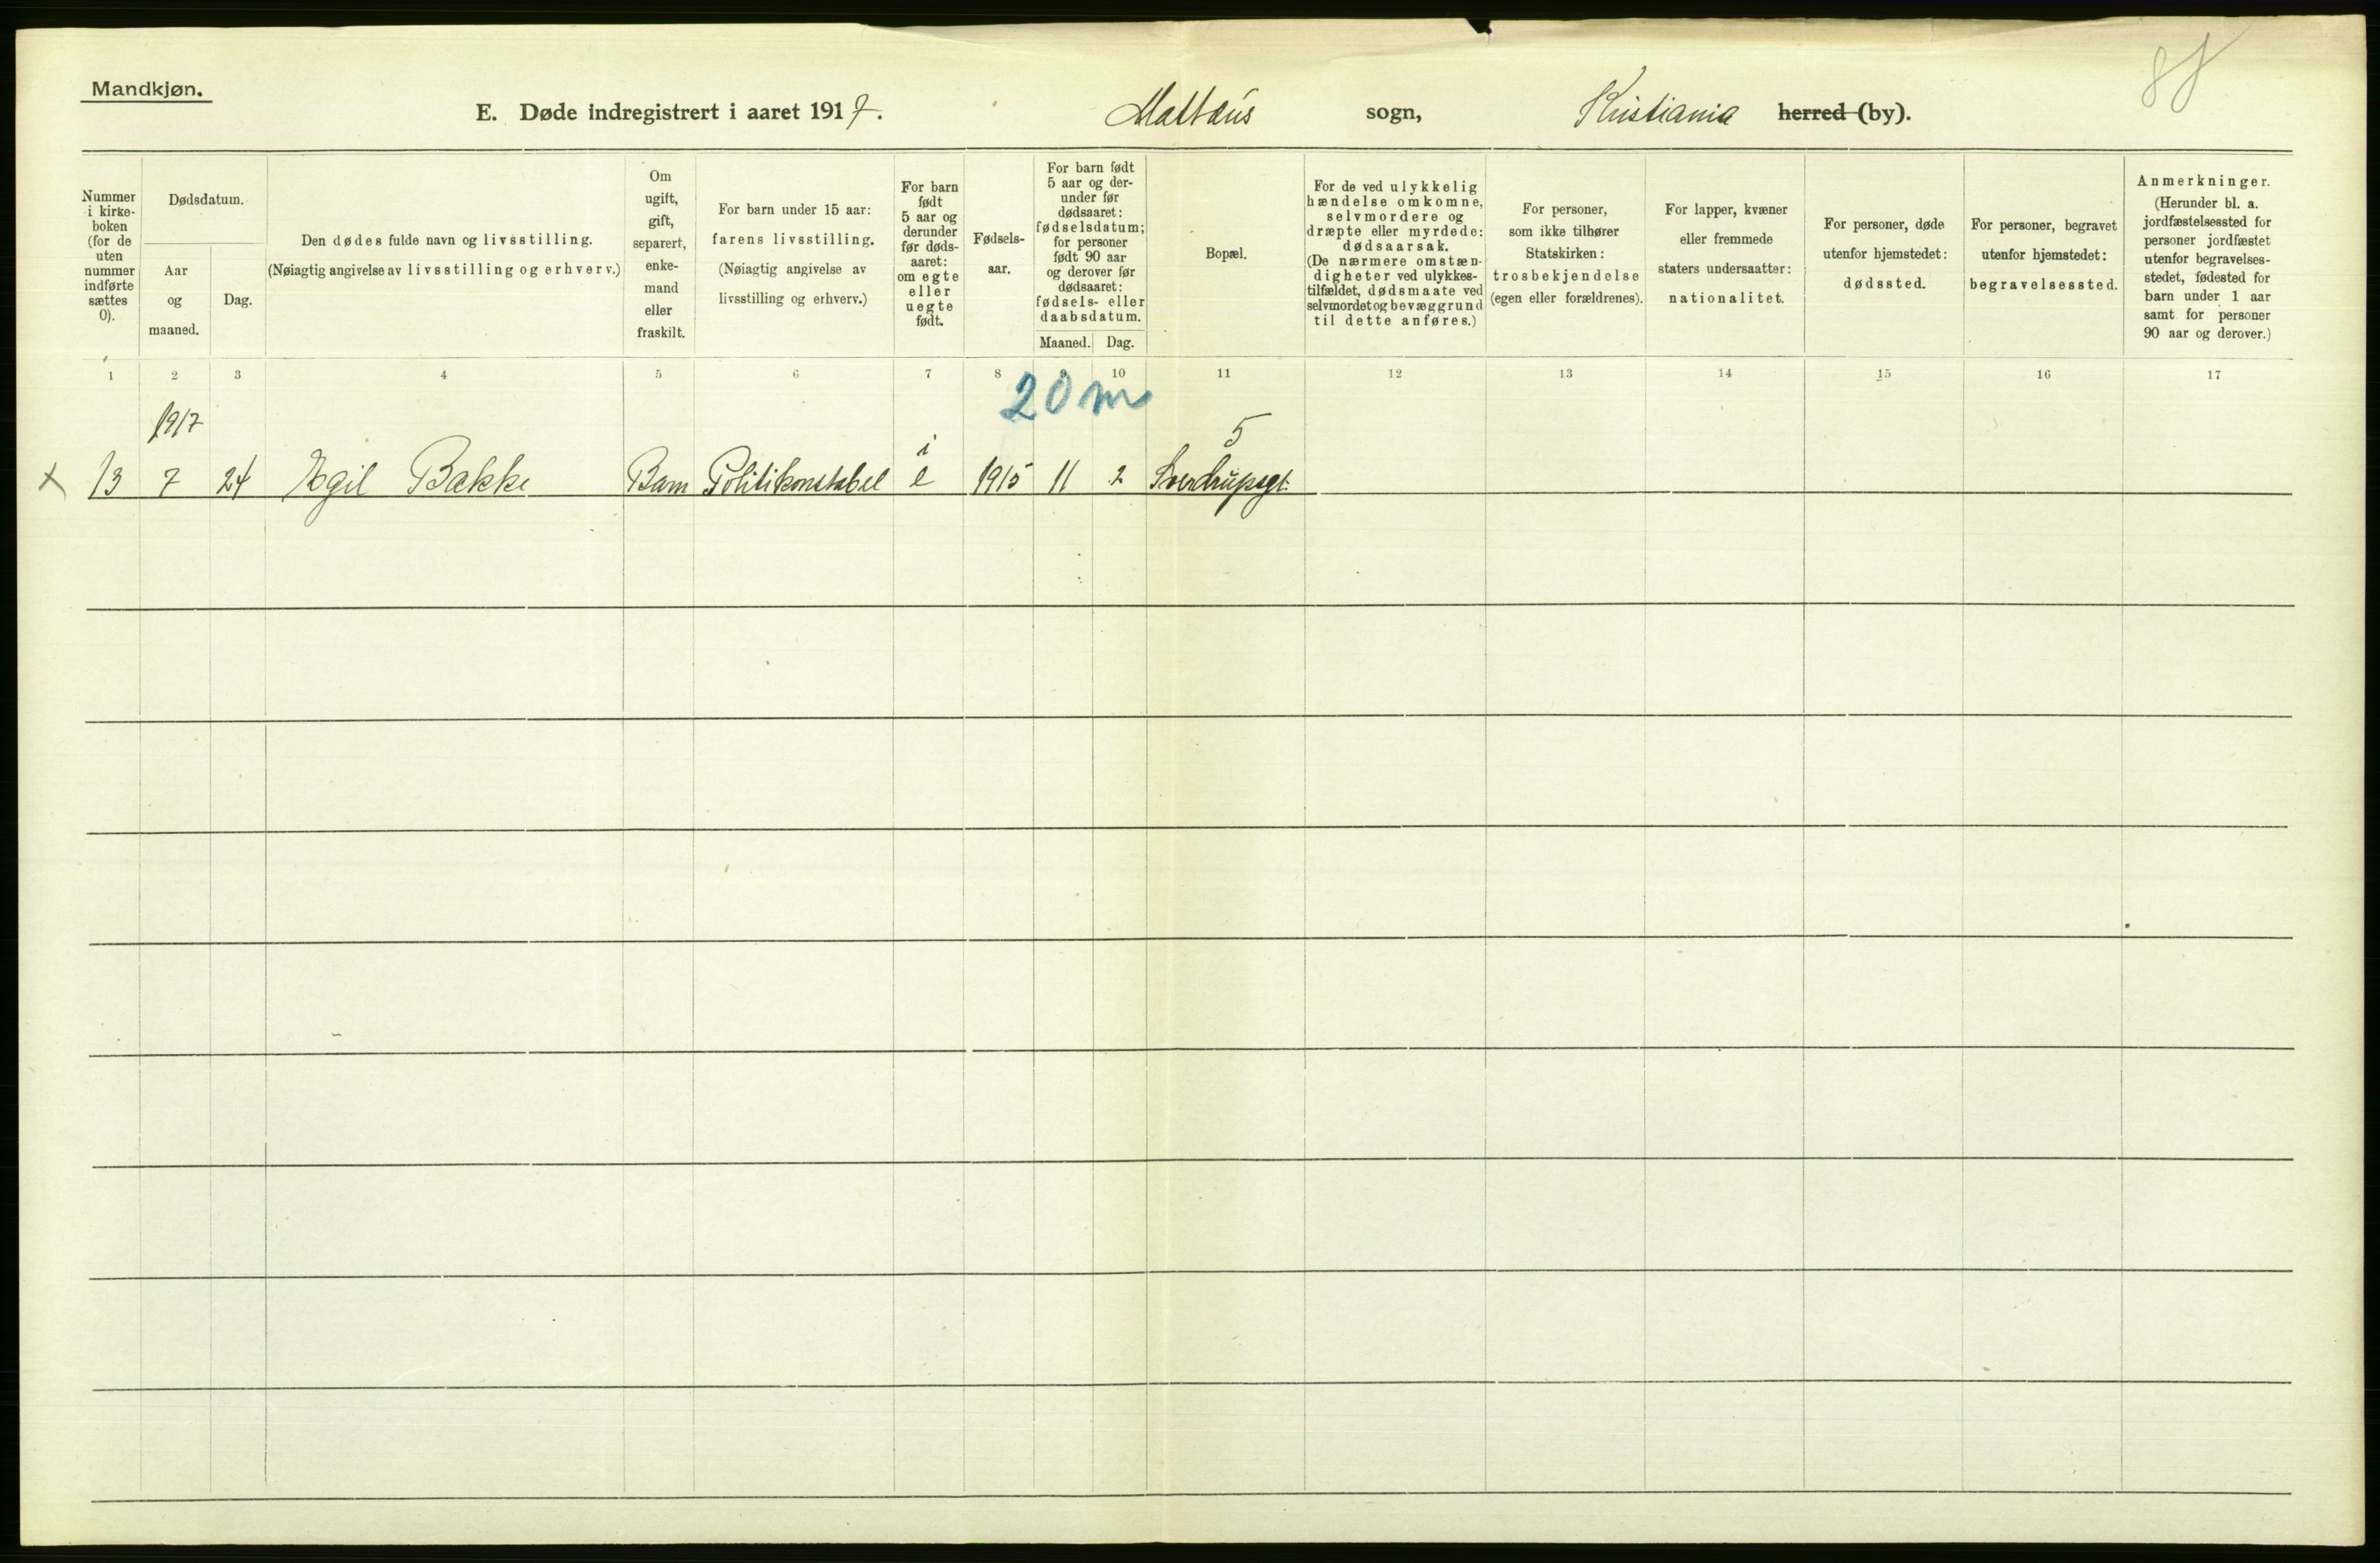 Mandkjøn.
88
E. Døde indregistrert i aaret 1917. Mattæus sogn, Kristiania herred (by).
Nummer i kirke-
boken
(for de
uten
nummer
indførte
sættes
0).
Dødsdatum.
Aar
og
maaned.
Dag.
Den dødes fulde navn og livsstilling.
(Nøiagtig angivelse av livsstilling og erhverv.)
Om
ugift,
gift,
separert,
enke-
mand
eller
fraskilt.
For barn under 15 aar:
farens livsstilling.
(Nøiagtig angivelse av
livsstilling og erhverv.)
For barn
født
5 aar og
derunder
før døds-
aaret:
om egte
eller
uegte
født.
Fødsels-
aar.
For barn født
5 aar og der-
under før
dødsaaret:
fødselsdatum;
for personer
født 90 aar
og derover før
dødsaaret:
fødsels- eller
daabsdatum.
Maaned. Dag.
Bopæl.
For de ved ulykkelig
hændelse omkomne,
selvmordere og
dræpte eller myrdede:
dødsaarsak.
(De nærmere omstæn-
digheter ved ulykkes-
tilfældet, dødsmaate ved
selvmordet og bevæggrund
til dette anføres.)
For personer,
som ikke tilhører
Statskirken:
trosbekjendelse
(egen eller forældrenes).
For lapper, kvæner
eller fremmede
staters undersaatter:
nationalitet.
For personer, døde
utenfor hjemstedet:
dødssted.
For personer, begravet
utenfor hjemstedet:
begravelsessted.
Anmerkninger.
(Herunder bl. a.
jordfæstelsessted for
personer jordfæstet
utenfor begravelses-
stedet, fødested for
barn under 1 aar
samt for personer
90 aar og derover.)
1 2 3 4 5 6 7 8 9 10 11 12 13 14 15 16 17
20 m
1917
i 5
x 13 7 24 Egil Bakke Barn Politikonstabel e 1915 11 2 Sverdrupsgt.